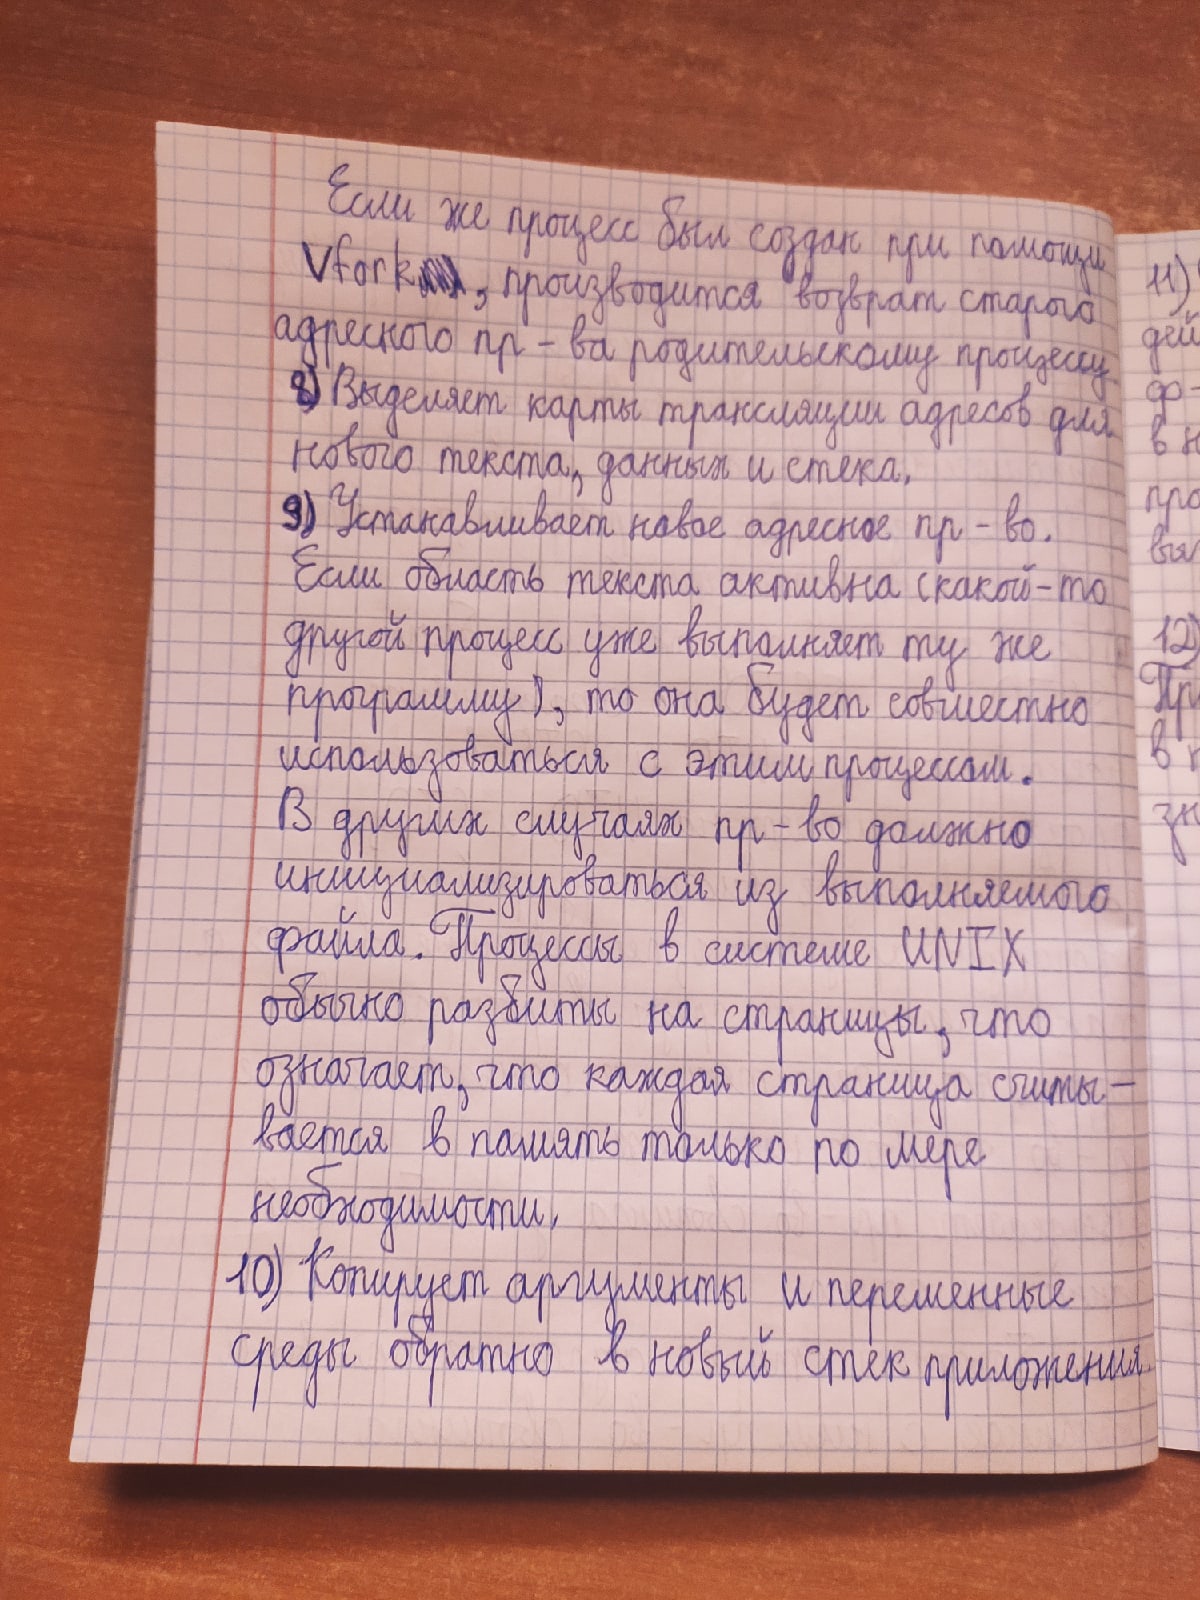 Если же процесс был создан при помощи
Vfork, производится возврат старого
адресного пр-ва родительскому процессу
8) Выделяет карты трансляции адресов для
нового текста, данных и стека.
9) Устанавливает новое адресное пр-во.
Если область текста активна (какой-то
другой процесс уже выполняет ту же
программу), то она будет совместно
использоваться с этим процессом.
В других случаях пр-во должно
инициализироваться из выполняемого
файла. Процессы в системе UNIX
обычно разбиты на страницы, что
означает, что каждая страница считы-
вается в память только по мере
необходимости.
10) Копирует аргументы и переменные
среды обратно в новый стек приложения.
11)
дей
ф-
в н
про
вы
12)
Пр
в
зн